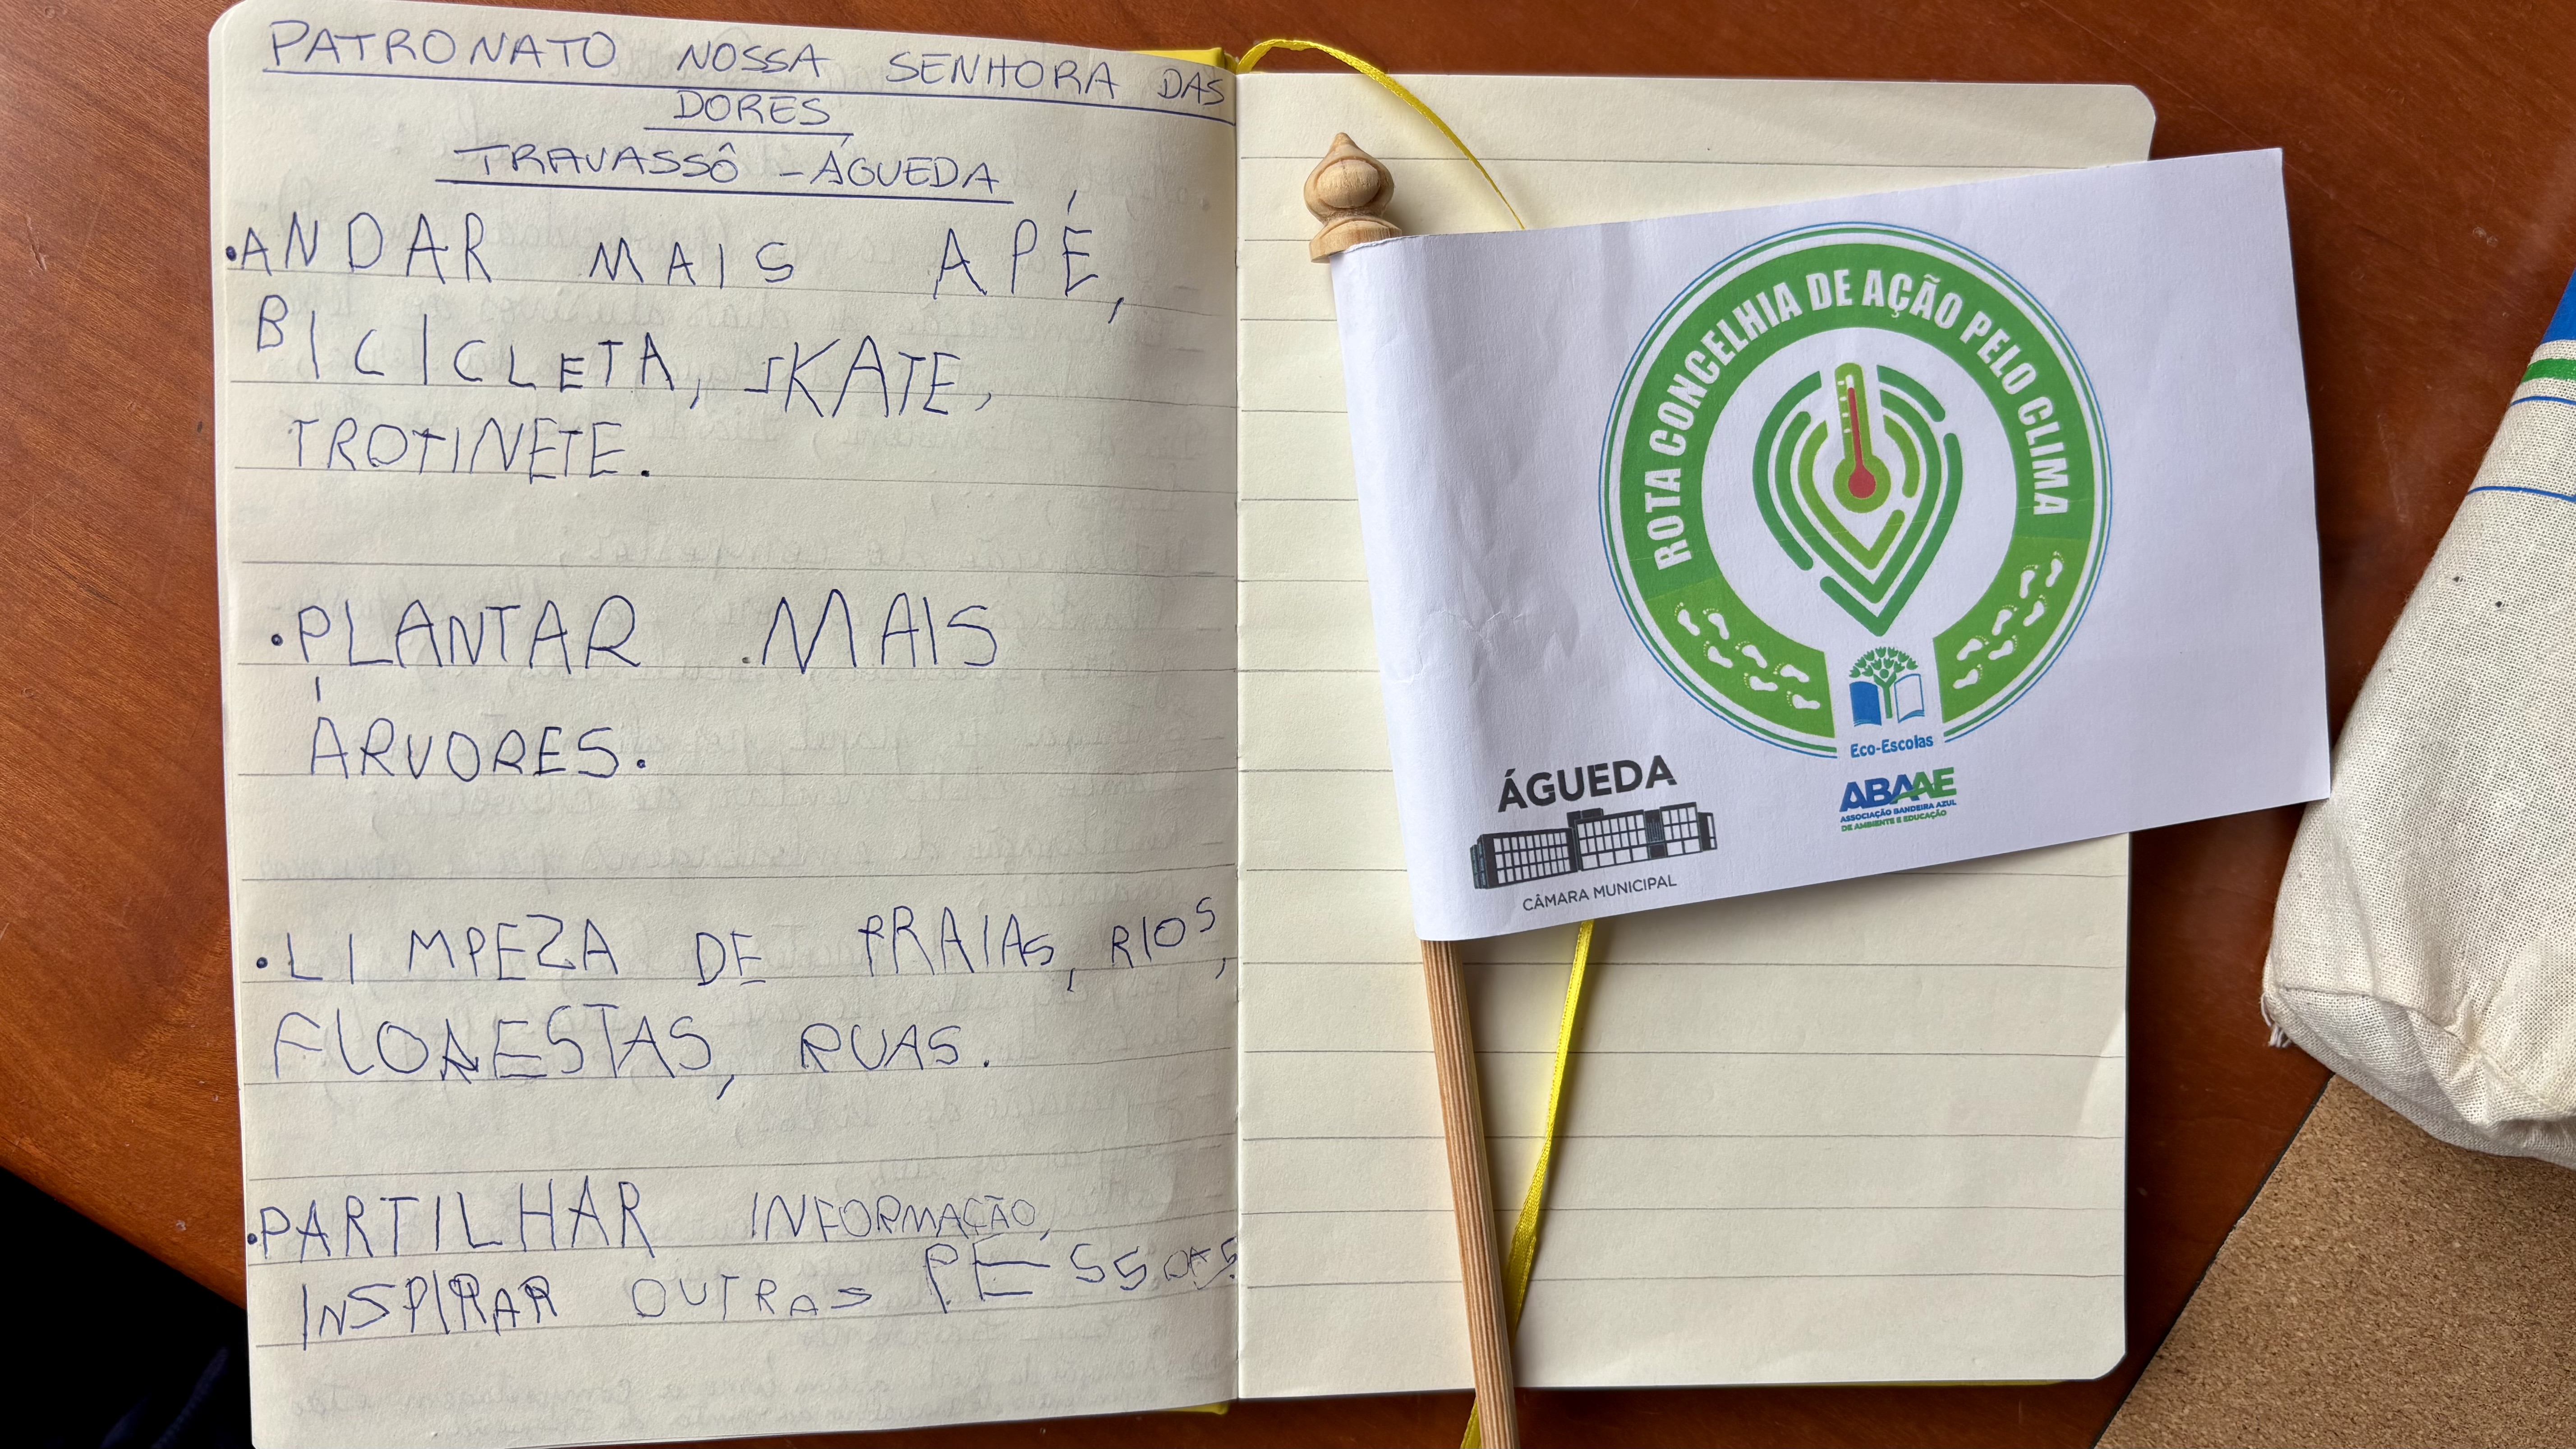 PATRONATO NOSSA SENHORA DAS
DORES
TRAVASSÔ - ÁGUEDA
• ANDAR MAIS A PÉ,
BICICLETA, SKATE,
TROTINETE.
• PLANTAR MAIS
ÁRVORES.
• LIMPEZA DE PRAIAS, RIOS,
FLORESTAS, RUAS.
• PARTILHAR INFORMAÇÃO,
INSPIRAR OUTRAS PESSOAS
ROTA CONCELHIA DE AÇÃO PELO CLIMA
Eco-Escolas
ABAAE
ASSOCIAÇÃO BANDEIRA AZUL
DE AMBIENTE E EDUCAÇÃO
ÁGUEDA
CÂMARA MUNICIPAL